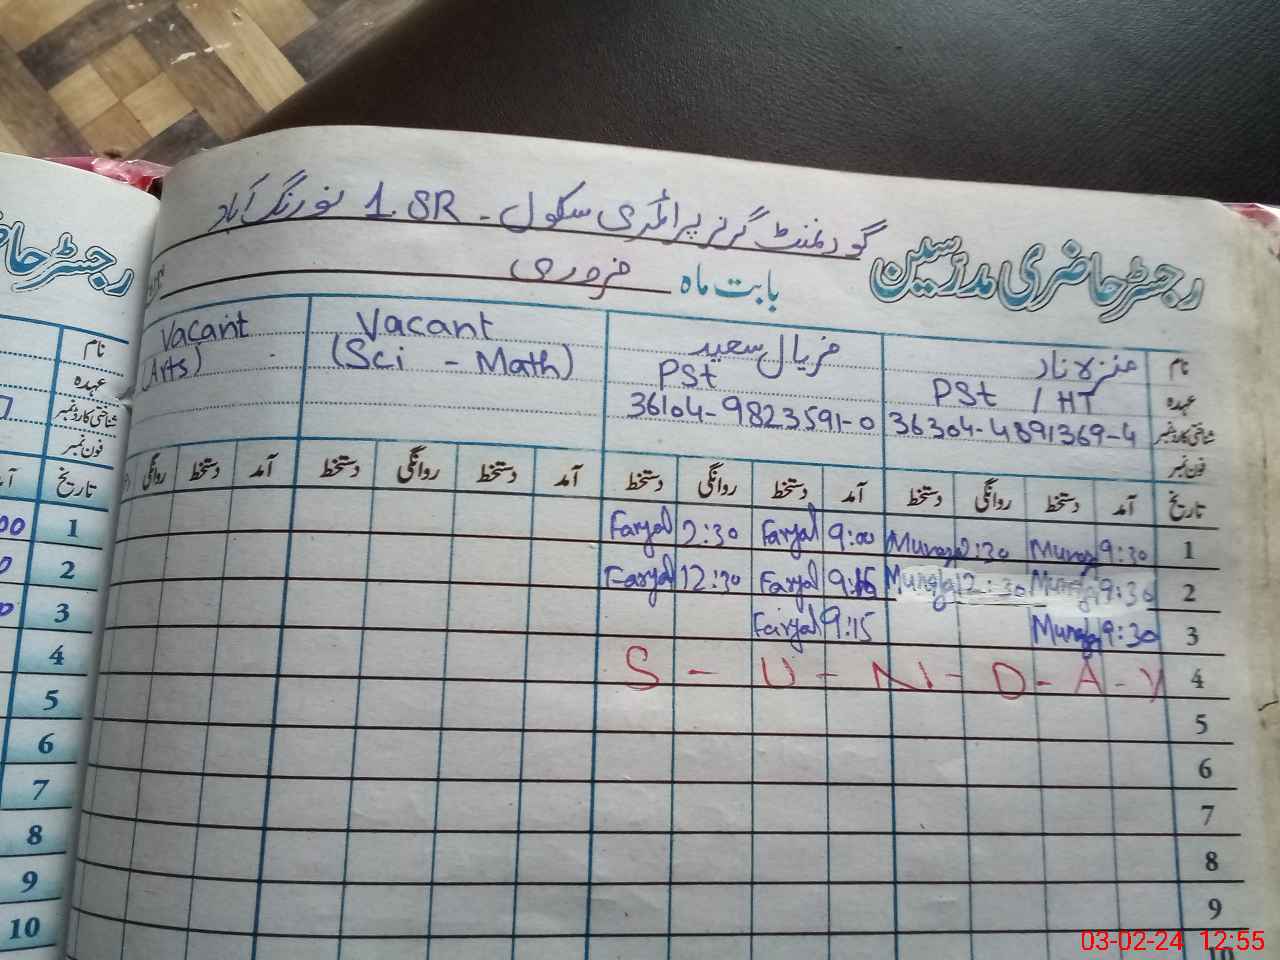 گورنمنٹ گرلز پرائمری سکول - 1.8R نورنگ آباد
رجسٹر حاضری مدرسین
بابت ماہ فروری
نام فریال سعید Vacant Vacant
عہدہ PSt / HT PSt (Sci - Math) (Arts)
شناختی کارڈ نمبر 36304-4891369-4 36104-9823591-0
فون نمبر
تاریخ آمد دستخط روانگی دستخط آمد دستخط روانگی دستخط آمد دستخط روانگی دستخط آمد دستخط روانگی
1 9:30 2:30 9:00 Faryal 2:30 Faryal
2 9:30 12:30 Faryal 12:30 Faryal
3 9:30 9:15 Faryal
4 S - U - N - D - A - Y
5
6
7
8
9
10
رجسٹر
نام
عہدہ
شناختی کارڈ نمبر
فون نمبر
تاریخ
1
2
3
4
5
6
7
8
9
10
03-02-24 12:55